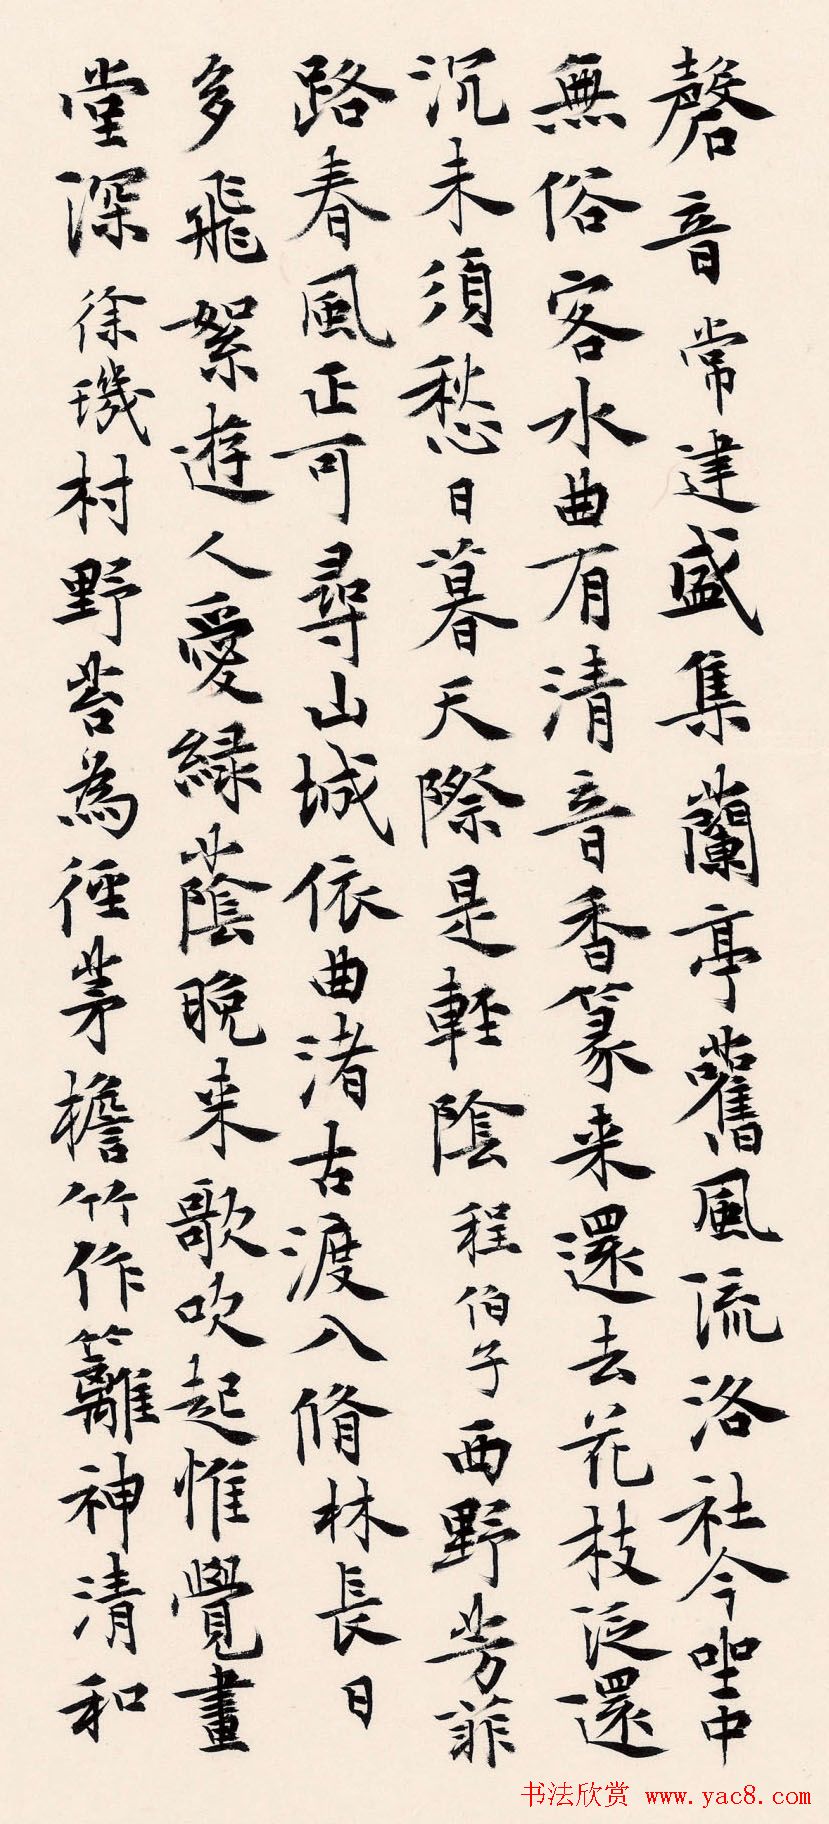 磬音常建盛集蘭亭舊風流洛社今坐中
無俗客水曲有清音香篆来還去花枝泛還
沉未須愁日暮天際是輕陰程伯子西野芳菲
路春風正可尋山城依曲渚古渡入脩林長日
多飛絮遊人愛綠蔭晚来歌吹起惟覺畫
堂深徐璣村野苔為徑茅檐竹作籬神清和
书法欣赏 www.yac8.com